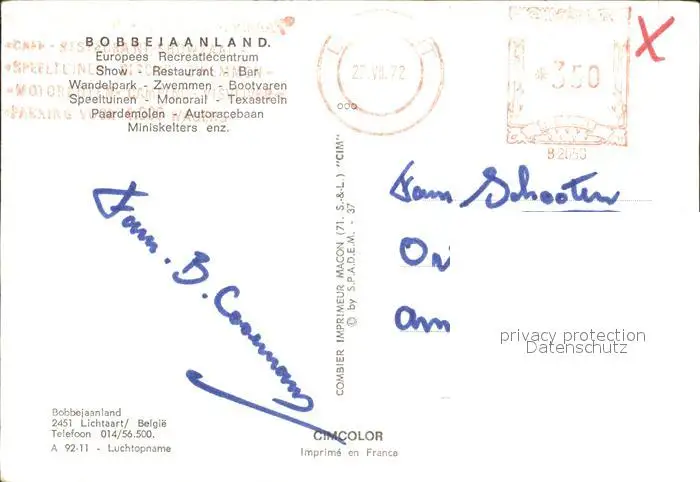 BOBBEJAANLAND.
Europees Recreatiecentrum
Show - Restaurant - Bar
Wandelpark - Zwemmen - Bootvaren
Speeltuinen - Monorail - Texastrein
Paardemolen - Autoracebaan
Miniskelters enz.
VII. 72
350
B 2050
X
COMBIER IMPRIMEUR MACON (71. S.-&-L.) "CIM"
© by S.P.A.D.E.M. - 37
Fam Schooten
Am
privacy protection
Datenschutz
Fam. B.
Bobbejaanland
2451 Lichtaart/ België
Telefoon 014/56.500.
A 92-11 - Luchtopname
CIMCOLOR
Imprimé en France